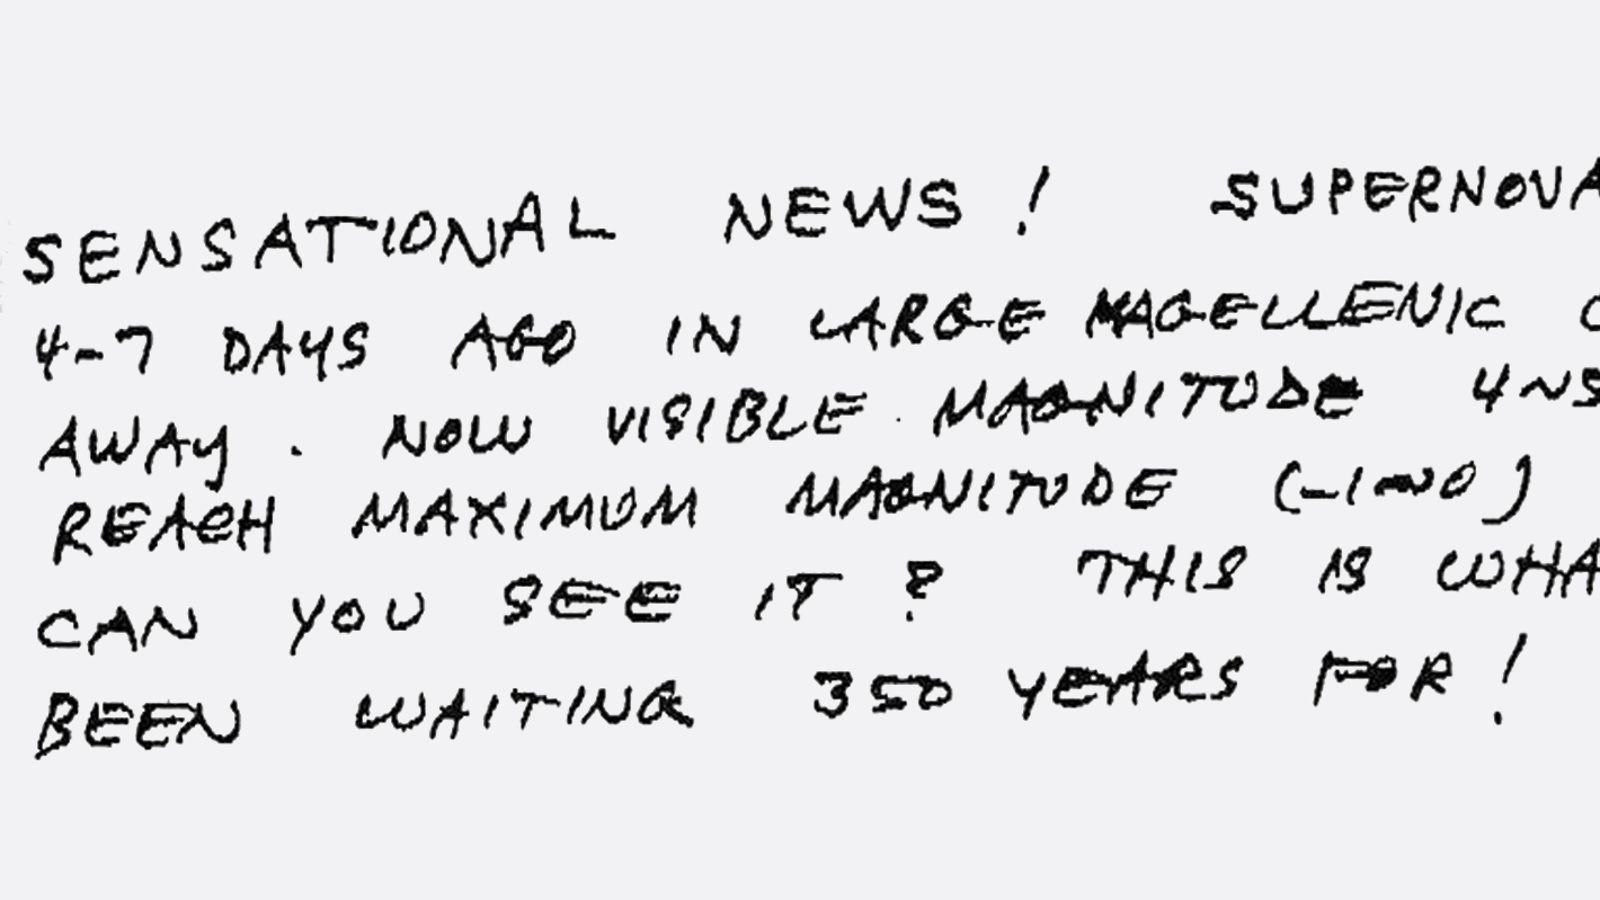 SENSATIONAL NEWS! SUPERNOVA
4-7 DAYS AGO IN LARGE MAGELLENIC C
AWAY. NOW VISIBLE MAGNITUDE 4~5
REACH MAXIMUM MAGNITUDE (-1~0)
CAN YOU SEE IT? THIS IS WHA
BEEN WAITING 350 YEARS FOR!